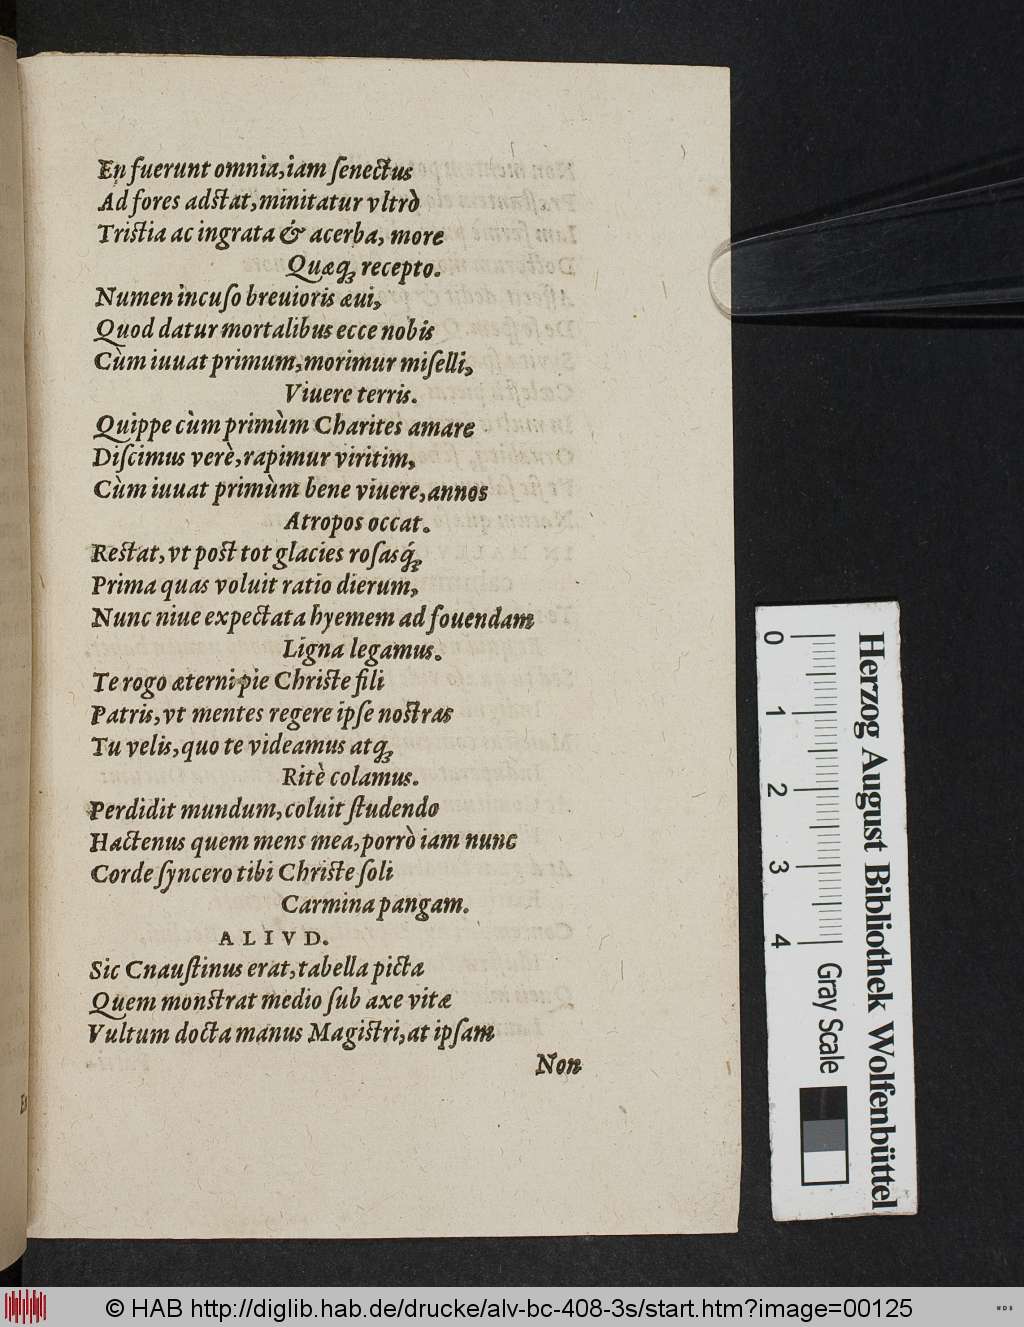 En fuerunt omnia, iam ſenectus
Ad fores adſtat, minitatur vltrò
Triſtia ac ingrata & acerba, more
Quæq́ꝫ recepto.
Numen incuſo breuioris æui,
Quod datur mortalibus ecce nobis
Cùm iuuat primum, morimur miſelli,
Viuere terris.
Quippe cùm primùm Charites amare
Diſcimus verè, rapimur viritim,
Cùm iuuat primùm bene viuere, annos
Atropos occat.
Reſtat, vt poſt tot glacies roſasq́ꝫ
Prima quas voluit ratio dierum,
Nunc niue expectata hyemem ad fouendam
Ligna legamus.
Te rogo æterni pie Chriſte fili
Patris, vt mentes regere ipſe noſtras
Tu velis, quo te videamus atqꝫ
Ritè colamus.
Perdidit mundum, coluit ſtudendo
Hactenus quem mens mea, porrò iam nunc
Corde ſyncero tibi Chriſte ſoli
Carmina pangam.
ALIVD.
Sic Cnauſtinus erat, tabella picta
Quem monſtrat medio ſub axe vitæ
Vultum docta manus Magiſtri, at ipſam
Non
Herzog August Bibliothek Wolfenbüttel
0 1 2 3 4
Gray Scale
© HAB http://diglib.hab.de/drucke/alv-bc-408-3s/start.htm?image=00125